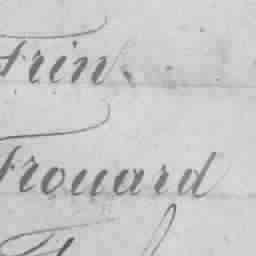 Frin.
Frouard